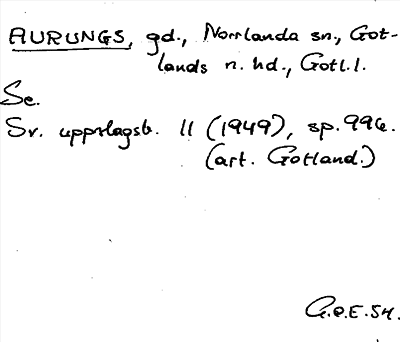 AURUNGS, gd., Norrlanda sn., Got-
lands n. hd., Gotl. l.
Se.
Sv. uppslagsb. 11 (1949), sp. 996.
(art. Gotland.)
G.e.E.54.